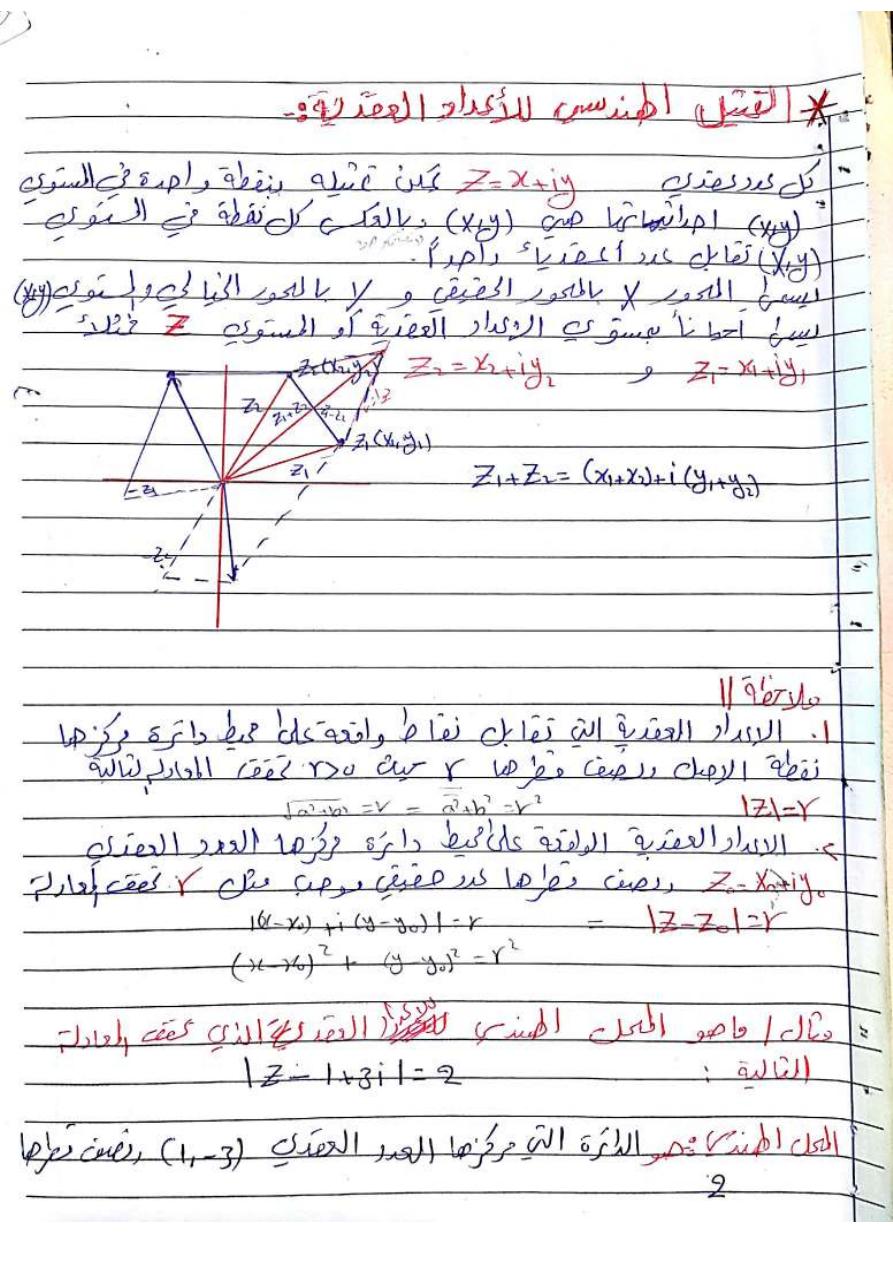 * التمثيل الهندسي للأعداد العقدية :-
كل عدد عقدي Z=x+iy يمكن تمثيله بنقطة واحدة في المستوي
(x,y) احداثياتها هي (x,y) وبالعكس كل نقطة في المستوي
(x,y) تقابل عدداً عقدياً واحداً.
يسمى المحور x بالمحور الحقيقي و y بالمحور الخيالي والمستوي (x,y)
يسمى احياناً بمستوي الاعداد العقدية أو المستوي Z فمثلاً
Z₁=x₁+iy₁ و Z₂=x₂+iy₂
Z₂(x₂,y₂)
Z₂
Z₁+Z₂
Z₁-Z₂
Z₁(x₁,y₁)
Z₁
-Z₁
-Z₂
Z₁+Z₂=(x₁+x₂)+i(y₁+y₂)
ملاحظة //
١. الاعداد العقدية التي تقابل نقاط واقعة على محيط دائرة مركزها
نقطة الاصل ونصف قطرها r حيث r>0 تحقق المعادلة التالية
|Z|=r √a²+b² =r = a²+b²=r²
٢. الاعداد العقدية الواقعة على محيط دائرة مركزها العدد العقدي
Z₀=x₀+iy₀ ونصف قطرها عدد حقيقي موجب مثل r تحقق المعادلة
|Z-Z₀|=r = |(x-x₀)+i(y-y₀)|=r
(x-x₀)²+(y-y₀)²=r²
مثال / ماهو المحل الهندسي للاعداد العقدية الذي تحقق المعادلة
التالية :
|Z-1+3i|=2
المحل الهندسي هو الدائرة التي مركزها العدد العقدي (1,-3) ونصف قطرها
2